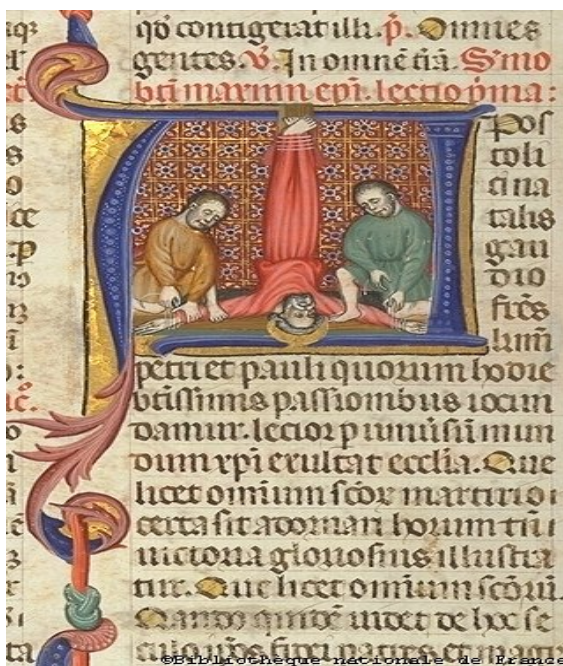 qō contigerat illi. p̄. Omnes
gentes. V̄. In omnē t̄rā. S'mo
bt̄i maximi ep̄i. lectio p̄ma:
Apos
toli
ci na
talis
gau
dio
fr̄es
petri et pauli quorum hodie
bt̄issimis passionibus iocun
damur. lectior p uniūsū mun
dum xp̄i exultat eccl̄ia. Que
licet omium sc̄or martirio
certa sit adornari horum tn̄
uictoria gloriosius illustra
tur. Que licet omium sc̄orū.
uidet de hoc se
culo fidei patres et
©Bibliothèque nationale de France